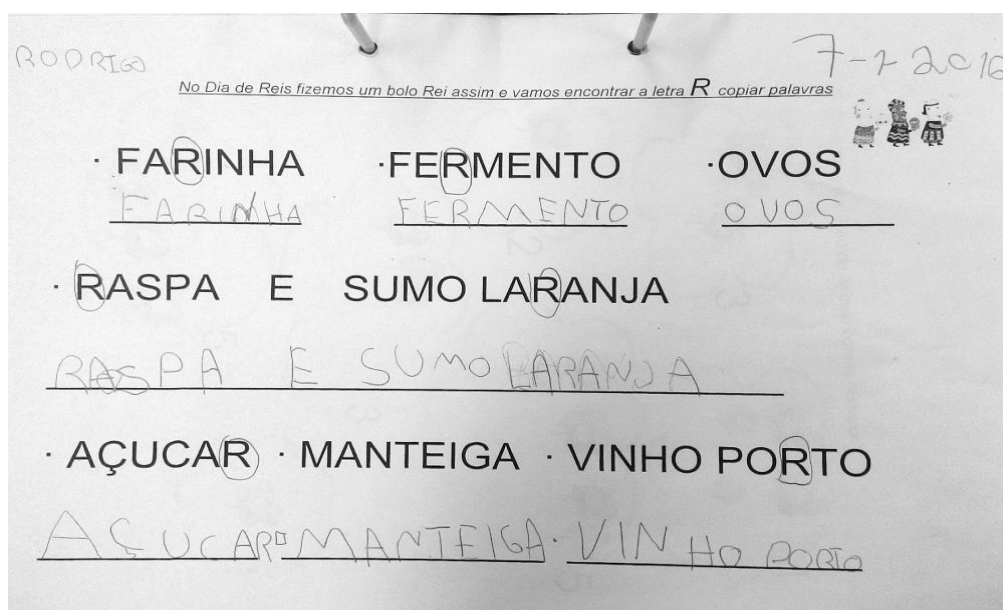 RODRIGO 7-1-2016
No Dia de Reis fizemos um bolo Rei assim e vamos encontrar a letra R copiar palavras
· FARINHA ·FERMENTO ·OVOS
FARINHA FERMENTO OVOS
· RASPA E SUMO LARANJA
RASPA E SUMO LARANJA
· AÇUCAR · MANTEIGA · VINHO PORTO
AÇUCAR MANTEIGA · VINHO PORTO